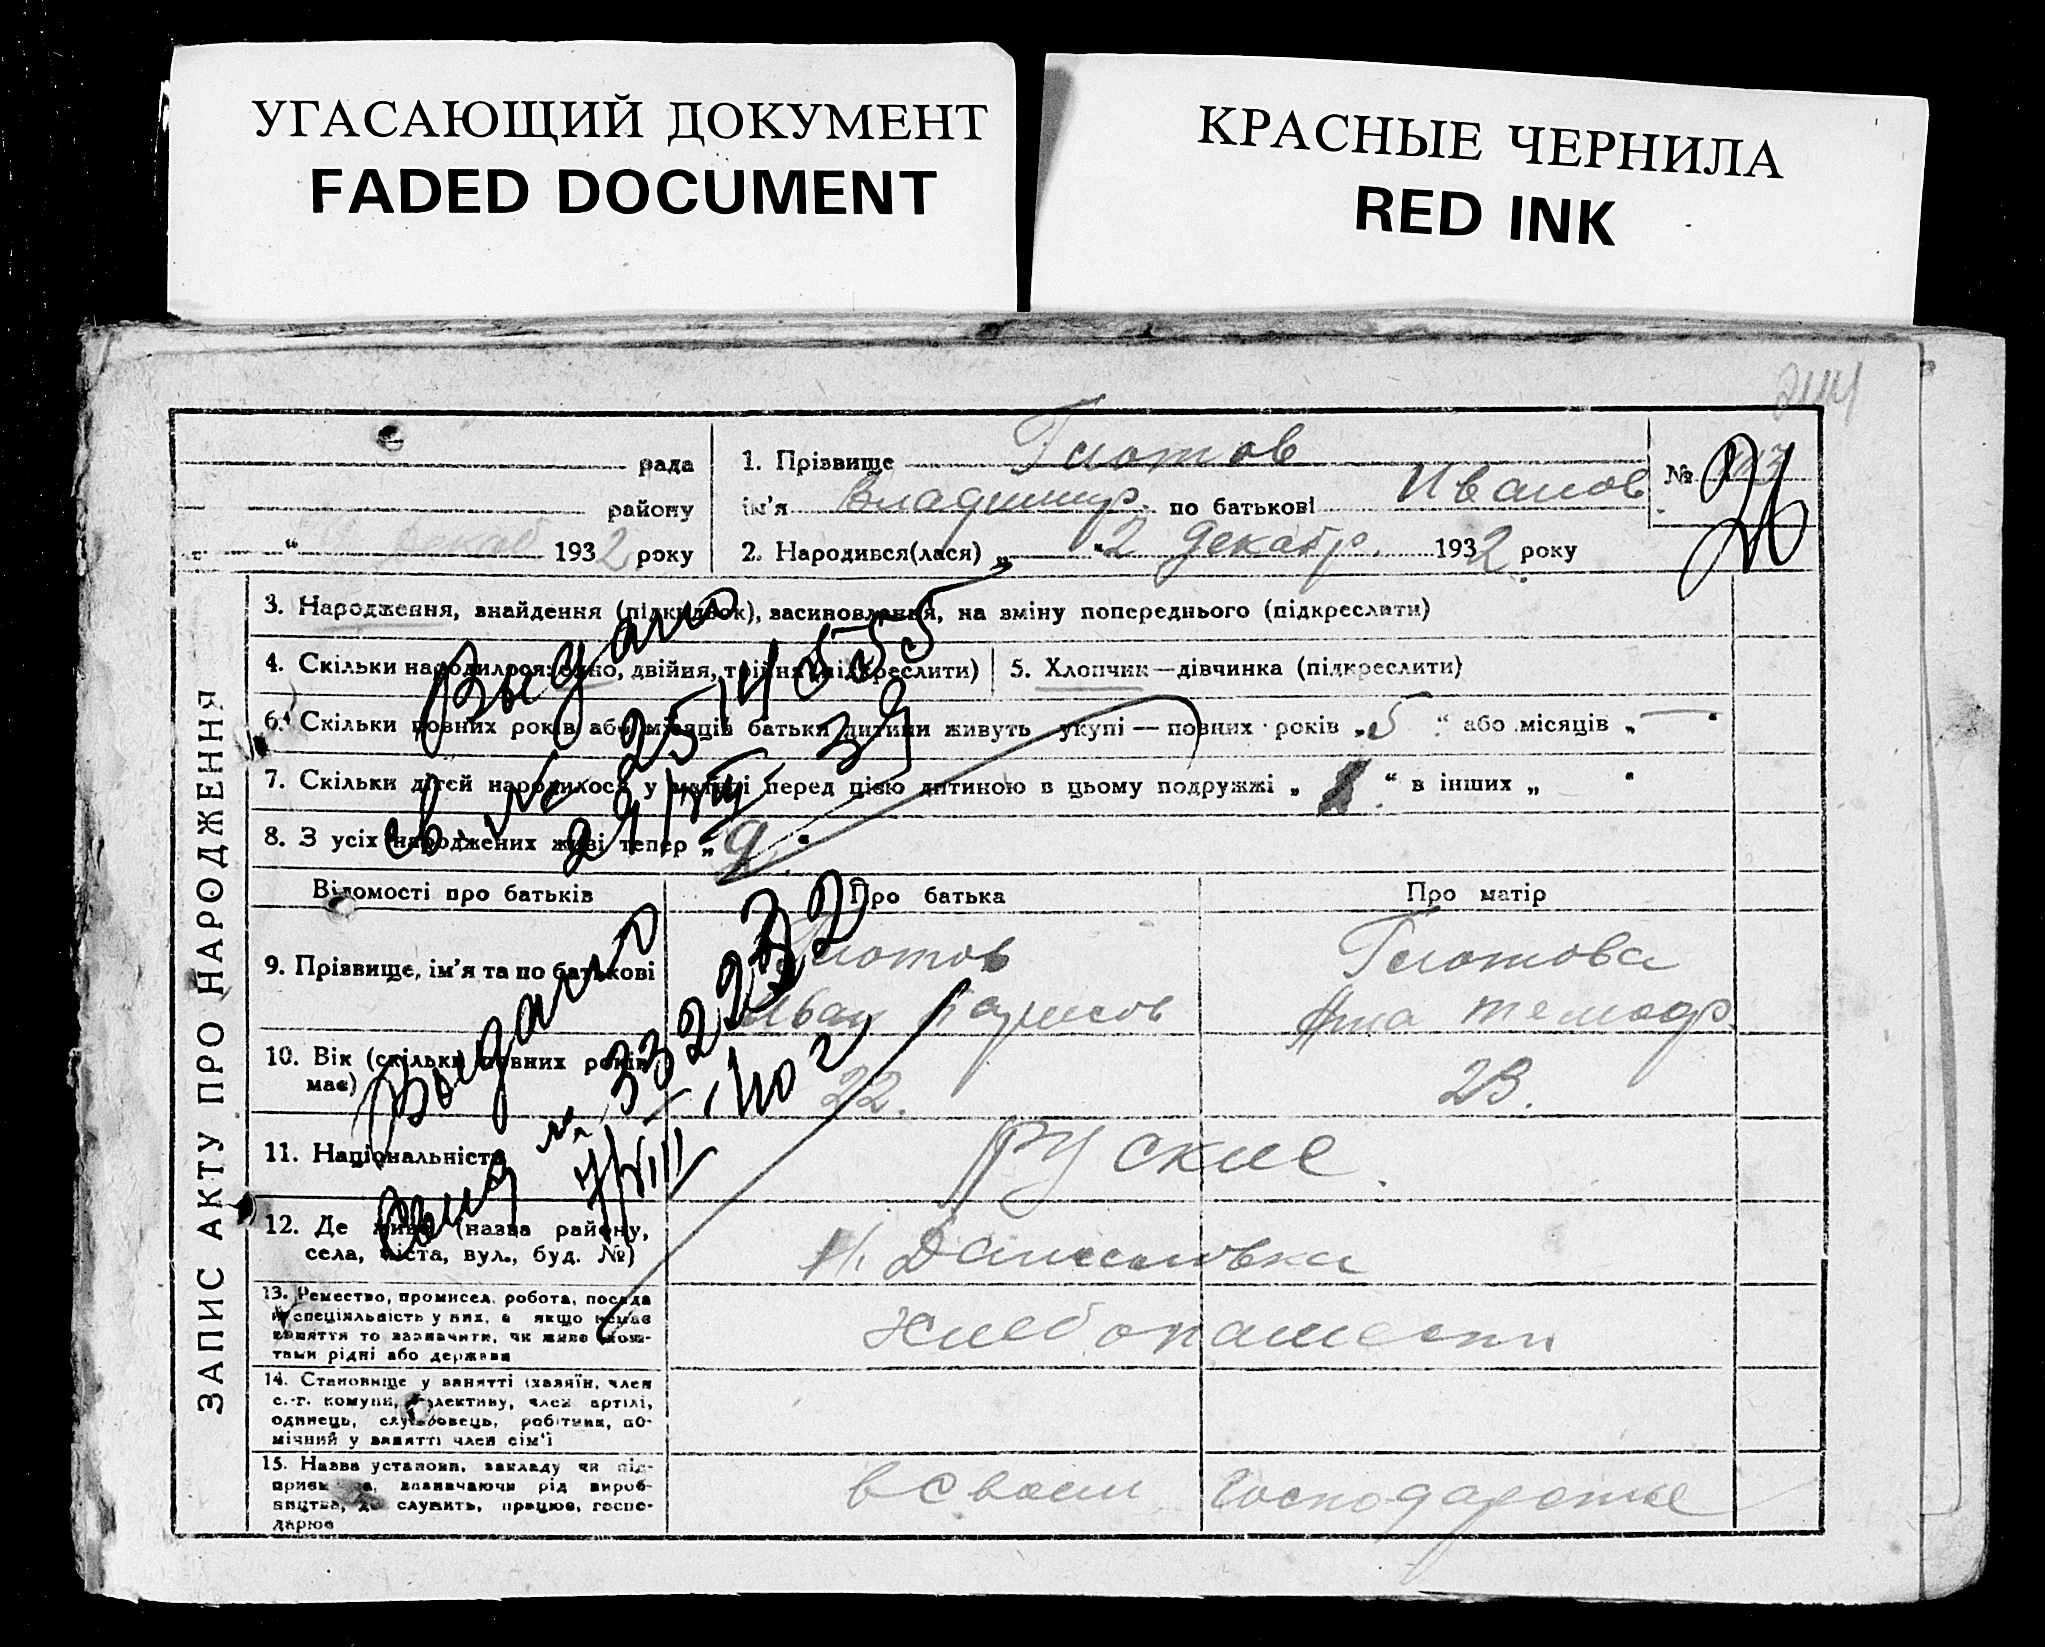 УГАСАЮЩИЙ ДОКУМЕНТ
FADED DOCUMENT
КРАСНЫЕ ЧЕРНИЛА
RED INK
рада
району
“ декаб 1932 року
1. Прізвище Глотов
ім'я Владимир по батькові Иванов
2. Народився(лася) „ 2 декабр. 1932 року
№
ЗАПИС АКТУ ПРО НАРОДЖЕННЯ
3. Народження, знайдення (підкидьок), засиновлення, на зміну попереднього (підкреслити)
4. Скільки народилося: одно, двійня, трійня (підкреслити)
5. Хлопчик—дівчинка (підкреслити)
6. Скільки повних років або місяців батьки дитини живуть укупі — повних років „5“ або місяців „—“
7. Скільки дітей народилося у матері перед цією дитиною в цьому подружжі „ “ в інших „ “
8. З усіх народжених живі тепер „2“
Выдано
Відомості про батьків
Про батька
Про матір
9. Прізвище, ім'я та по батькові
Глотов
Иван
Глотова
10. Вік (скільки повних років має)
22.
23.
11. Національність
Руские
12. Де живе (назва району,
села, міста, вул., буд. №)
Н. Даниловка
13. Ремество, промисел, робота, посада
й спеціяльність у них, а якщо немає
заняття то зазначити, чи живе кош-
тами рідні або держави
хлебопашест
14. Становище у занятті (хазяїн, член
с.-г. комуни, колективу, член артілі,
одинець, службовець, робітник, по-
мічний у занятті член сім'ї
15. Назва установи, закладу чи під-
приємства, зазначаючи рід вироб-
ництва, де служить, працює, госпо-
дарює
в своем господарстве
Выдано
№ 332232